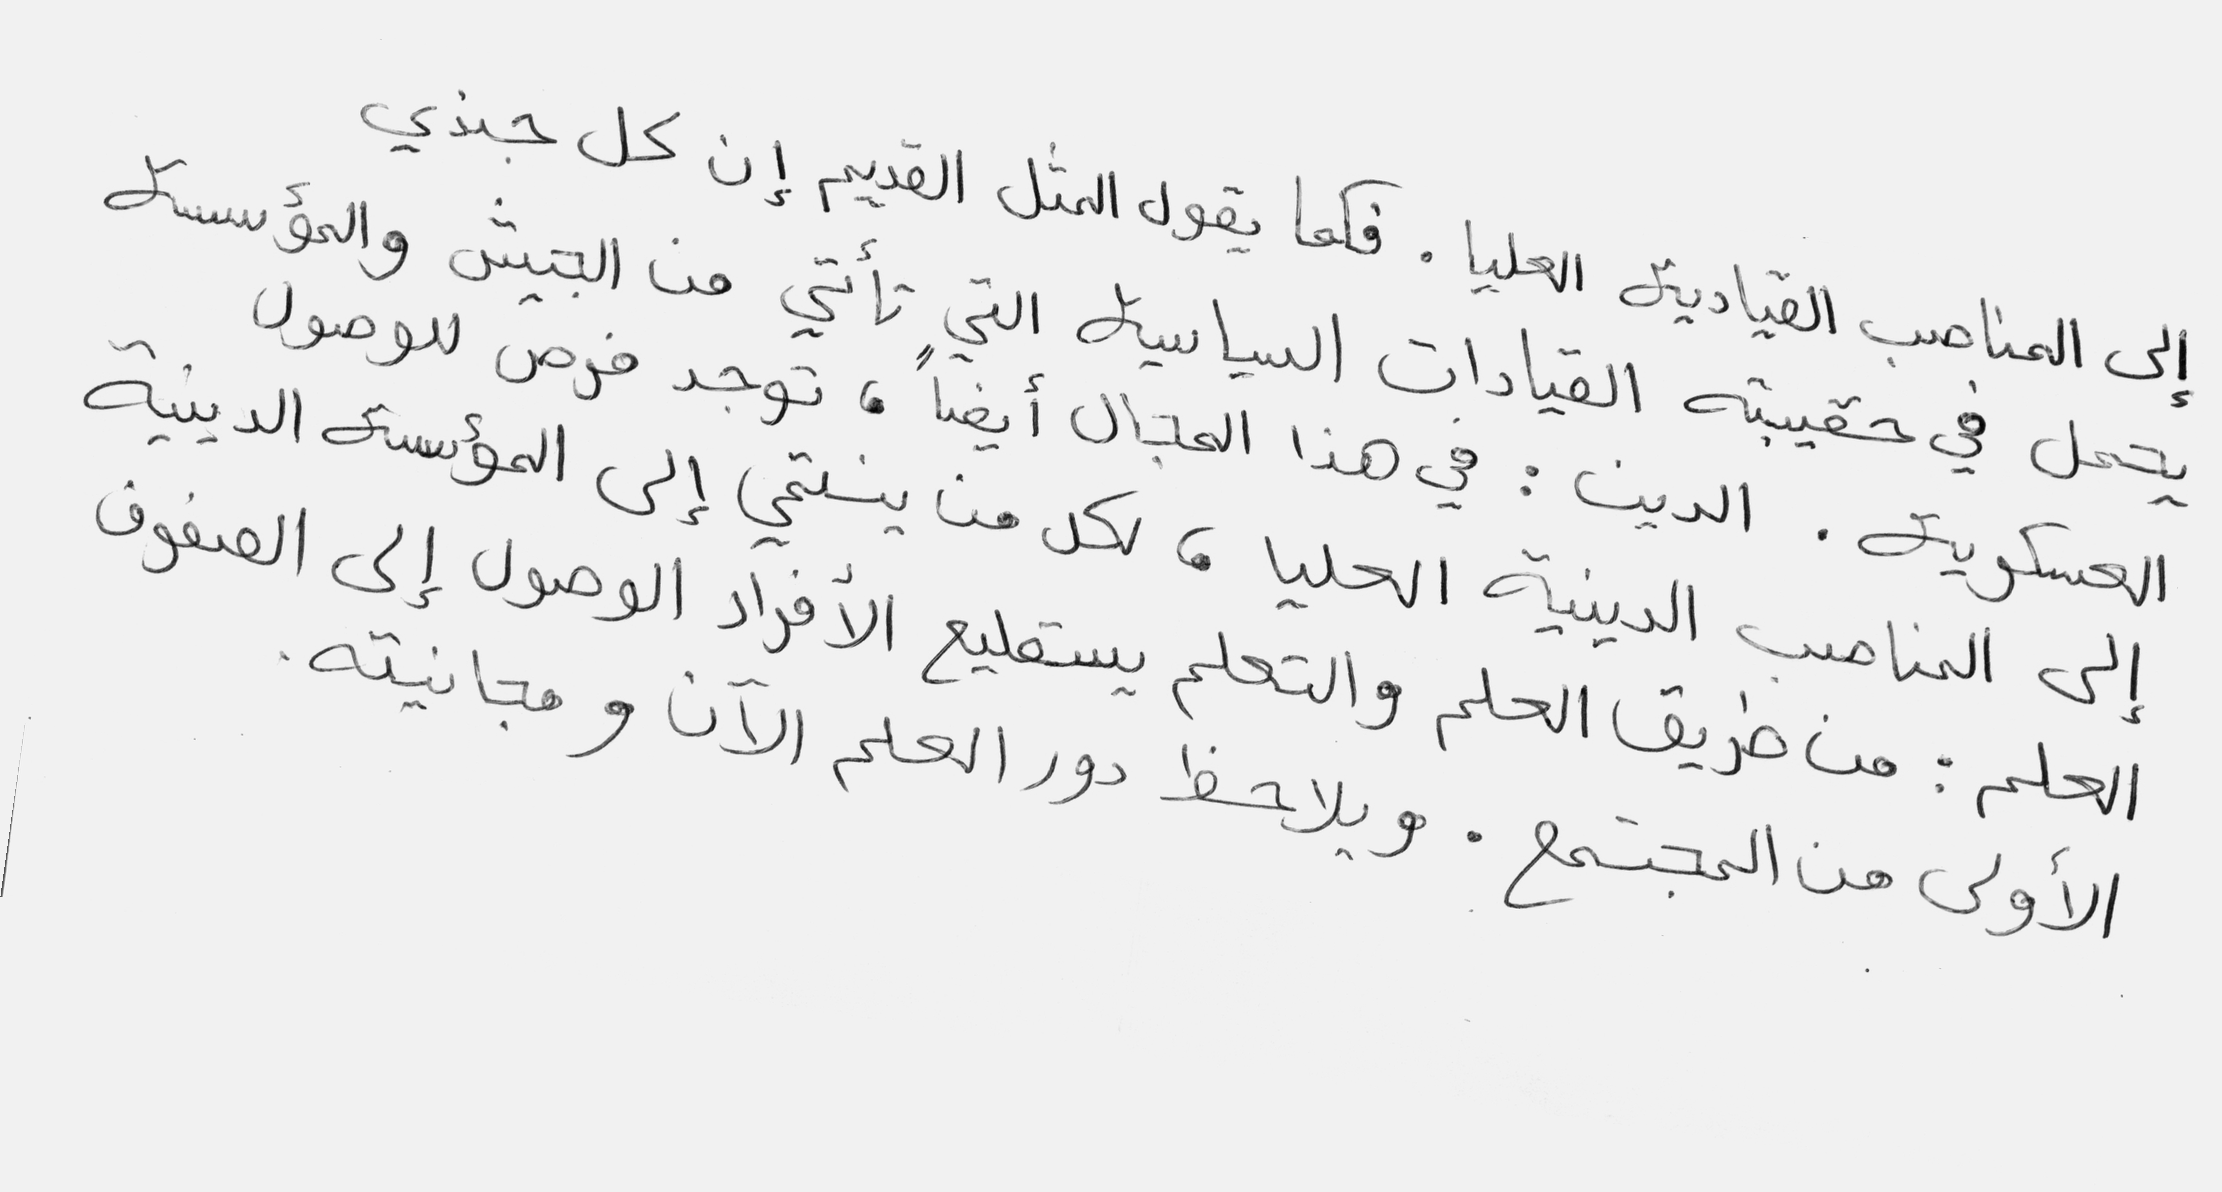 إلى المناصب القيادية العليا . فكما يقول المثل القديم إن كل جندي
يحمل في حقيبته القيادات السياسية التي تأتي من الجيش والمؤسسة
العسكرية . الدين : في هذا المجال أيضاً ، توجد فرص للوصول
إلى المناصب الدينية العليا ، لكل من ينتمي إلى المؤسسة الدينية
العلم : من طريق العلم والتعلم يستطيع الأفراد الوصول إلى الصفوف
الأولى من المجتمع . ويلاحظ دور العلم الآن ومجانيته .